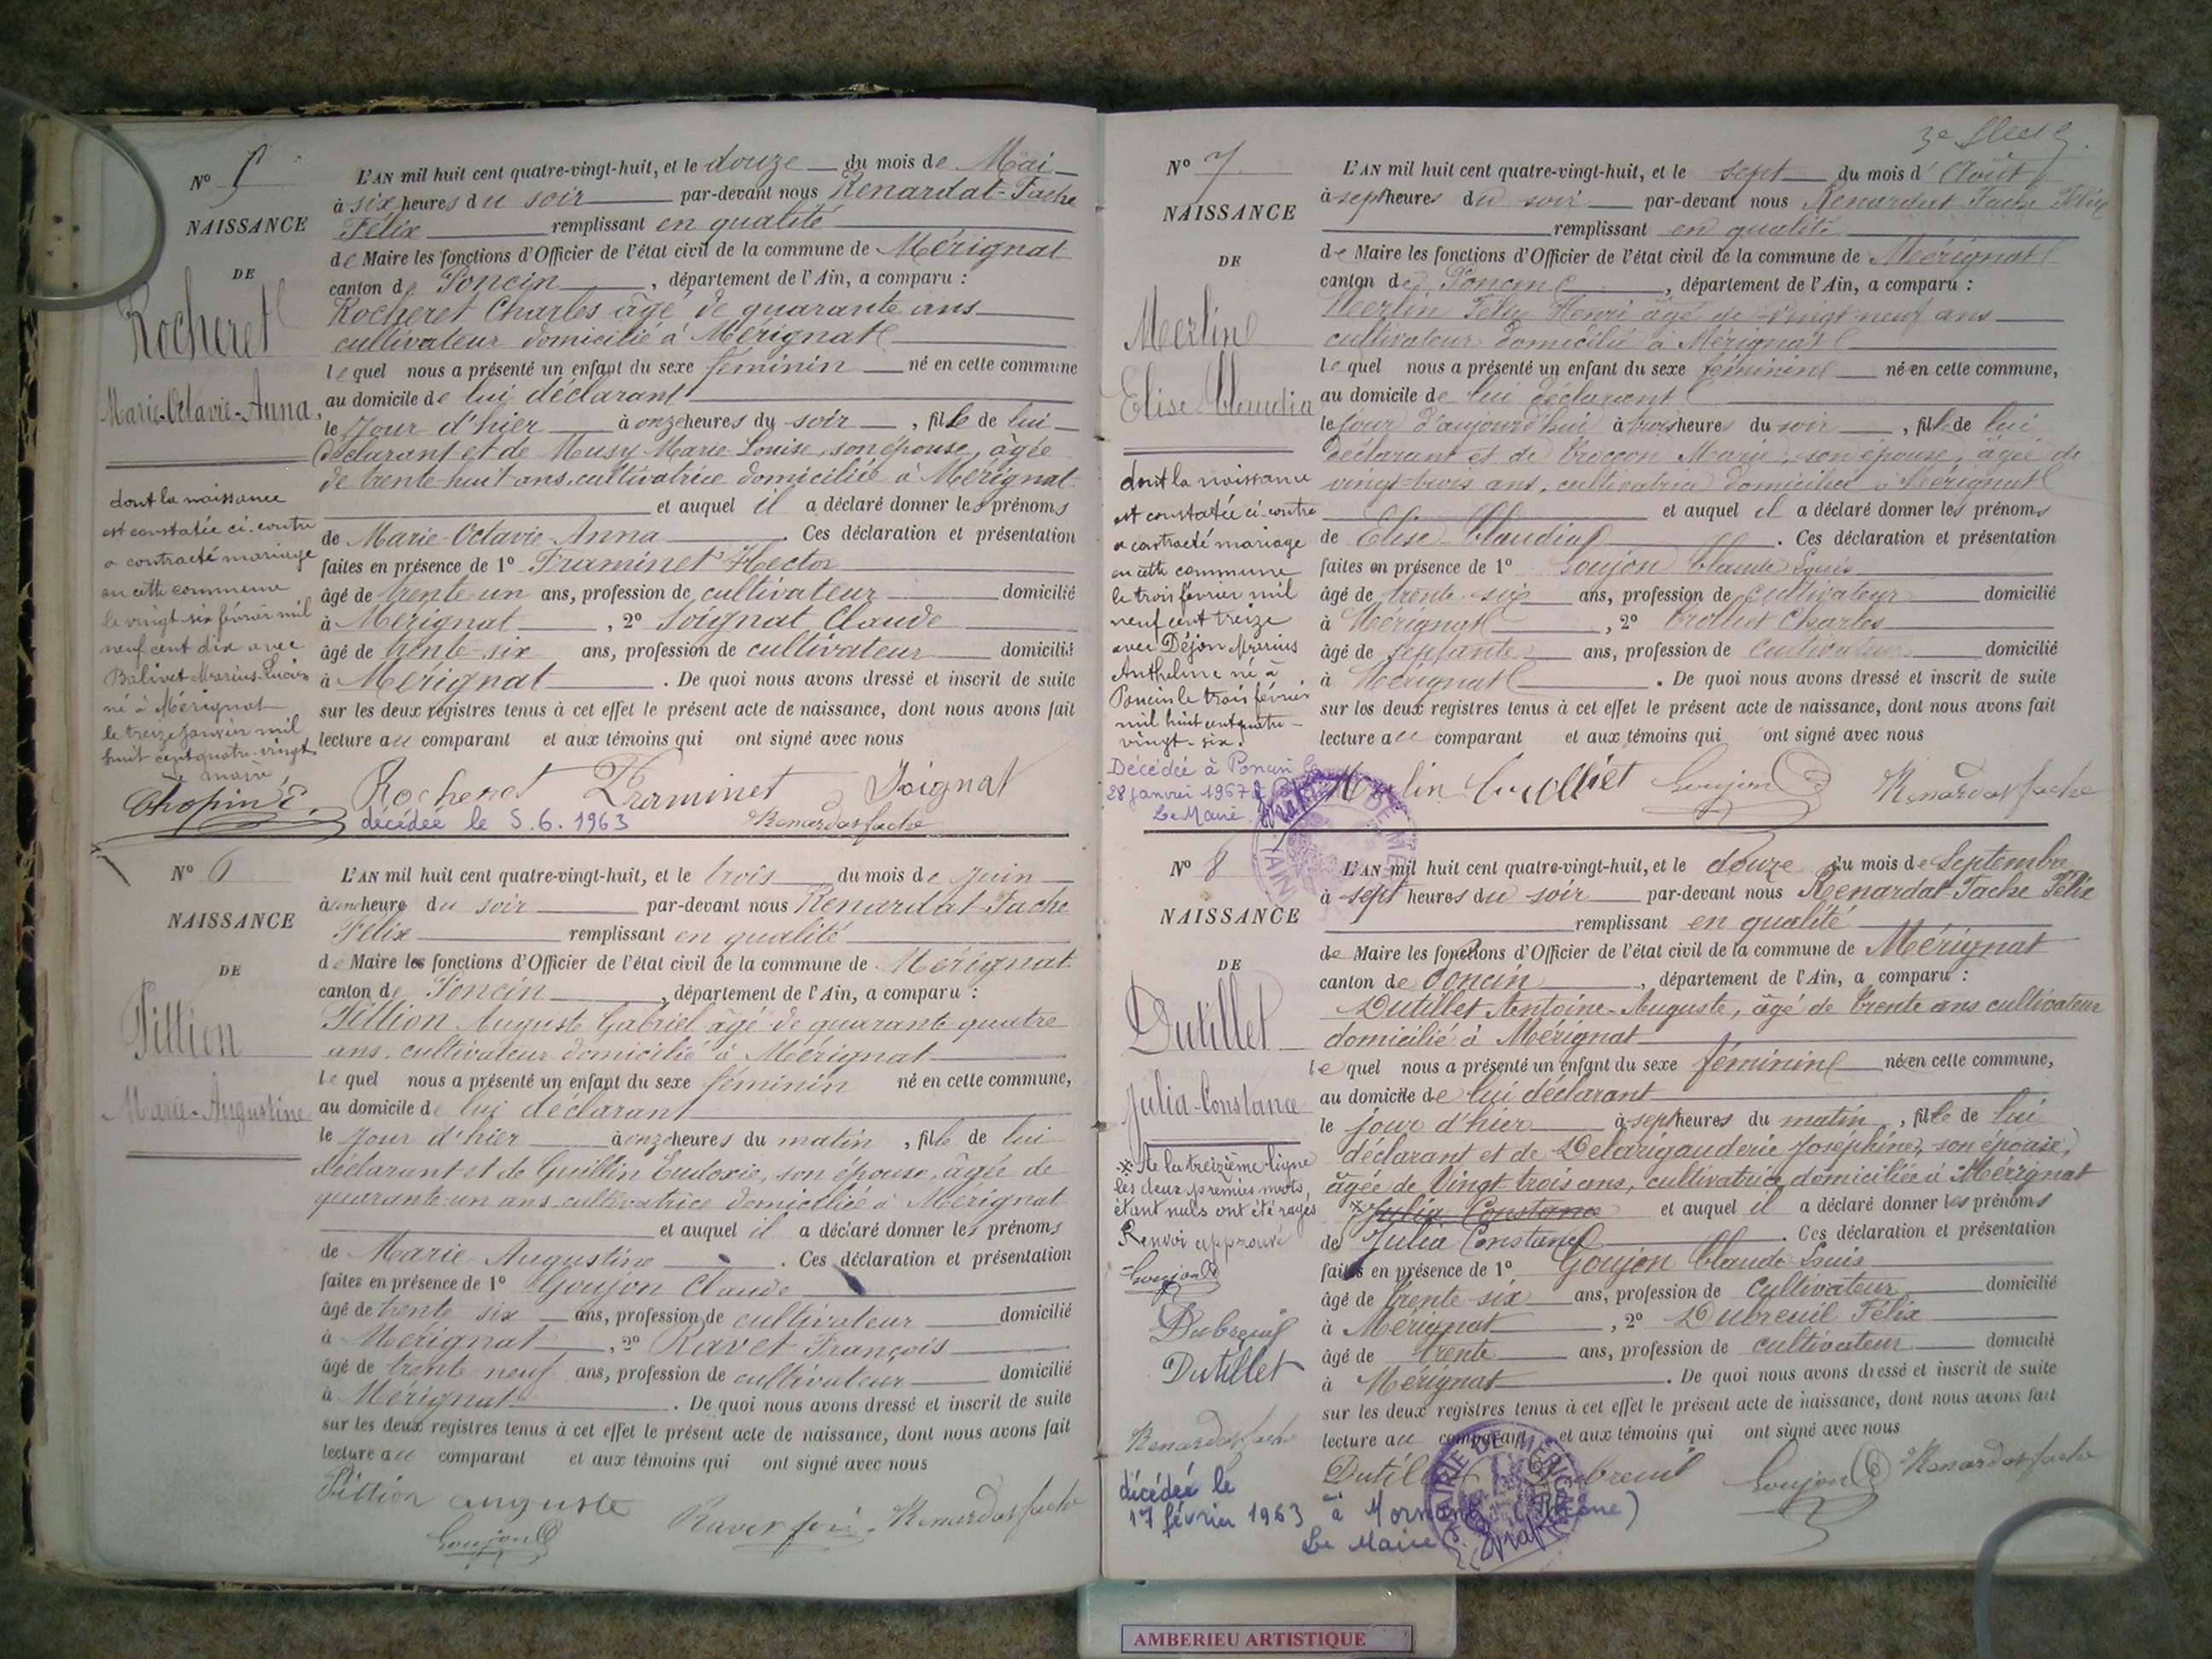 Nº 5
NAISSANCE
DE
Rocheret
Marie-Octavie-Anna,
dont la naissance
est constatée ci-contre
a contracté mariage
en cette commune
le vingt six février mil
neuf cent dix avec
Balivet Marius-Lucien
né à Mérignat
le treize janvier mil
huit cent quatre-vingt
Le maire
Chopin E.
L'AN mil huit cent quatre-vingt-huit, et le douze du mois de Mai
à six heures du soir par-devant nous Renardat-Fache
Félix remplissant en qualité
de Maire les fonctions d'Officier de l'état civil de la commune de Mérignat
canton de Poncin, département de l'Ain, a comparu :
Rocheret Charles âgé de quarante ans
cultivateur domicilié à Mérignat
lequel nous a présenté un enfant du sexe féminin né en cette commune
au domicile de lui déclarant
le Jour d'hier à onze heures du soir, fille de lui
déclarant et de Musy Marie Louise, son épouse, âgée
de trente-huit ans, cultivatrice domiciliée à Mérignat
et auquel il a déclaré donner les prénoms
de Marie-Octavie-Anna. Ces déclaration et présentation
faites en présence de 1º Framinet Hector
âgé de trente-un ans, profession de cultivateur domicilié
à Mérignat, 2º Soignat Claude
âgé de trente-six ans, profession de cultivateur domicilié
à Mérignat. De quoi nous avons dressé et inscrit de suite
sur les deux registres tenus à cet effet le présent acte de naissance, dont nous avons fait
lecture au comparant et aux témoins qui ont signé avec nous
Rocheret Framinet Soignat
décédée le 5.6.1963 Renardat fache
Nº 6
NAISSANCE
DE
Pittion
Marie-Augustine
L'AN mil huit cent quatre-vingt-huit, et le trois du mois de Juin
à une heure du soir par-devant nous Renardat-Fache
Félix remplissant en qualité
de Maire les fonctions d'Officier de l'état civil de la commune de Mérignat
canton de Poncin, département de l'Ain, a comparu :
Pittion Auguste Gabriel âgé de quarante-quatre
ans, cultivateur domicilié à Mérignat
lequel nous a présenté un enfant du sexe féminin né en cette commune,
au domicile de lui déclarant
le Jour d'hier à onze heures du matin, fille de lui
déclarant et de Guillin Eudoxie, son épouse, âgée de
quarante-un ans cultivatrice domiciliée à Mérignat
et auquel il a déclaré donner les prénoms
de Marie-Augustine. Ces déclaration et présentation
faites en présence de 1º Goujon Claude
âgé de trente six ans, profession de cultivateur domicilié
à Mérignat, 2º Ravet François
âgé de trente neuf ans, profession de cultivateur domicilié
à Mérignat. De quoi nous avons dressé et inscrit de suite
sur les deux registres tenus à cet effet le présent acte de naissance, dont nous avons fait
lecture au comparant et aux témoins qui ont signé avec nous
Pittion auguste
Goujon Ravet Renardat fache
Nº 7
NAISSANCE
DE
Merlin
Elise Claudia
dont la naissance
est constatée ci-contre
a contracté mariage
en cette commune
le trois février mil
neuf cent treize
avec Déjon Marius
Anthelme né à
Poncin le trois février
mil huit cent quatre-
vingt-six.
Décédée à Poncin le
28 janvier 1967
Le Maire
3e
L'AN mil huit cent quatre-vingt-huit, et le sept du mois d'Août
à sept heures du soir par-devant nous Renardat Fache Félix
remplissant en qualité
de Maire les fonctions d'Officier de l'état civil de la commune de Mérignat
canton de Poncin, département de l'Ain, a comparu :
Merlin Félix Henri âgé de vingt-neuf ans
cultivateur domicilié à Mérignat
Lequel nous a présenté un enfant du sexe féminin né en cette commune,
au domicile de lui déclarant
le jour d'aujourd'hui à trois heures du soir, fille de lui
déclarant et de Marie, son épouse, âgée de
vingt-trois ans, cultivatrice domiciliée à Mérignat
et auquel il a déclaré donner les prénoms
de Elise Claudia. Ces déclaration et présentation
faites en présence de 1º Goujon Claude Louis
âgé de trente-six ans, profession de cultivateur domicilié
à Mérignat, 2º Charles
âgé de septante ans, profession de cultivateur domicilié
à Mérignat. De quoi nous avons dressé et inscrit de suite
sur les deux registres tenus à cet effet le présent acte de naissance, dont nous avons fait
lecture au comparant et aux témoins qui ont signé avec nous
Merlin Goujon Renardat fache
Nº 8
NAISSANCE
DE
Dutillet
Julia-Constance
※ De la treizième ligne
les deux premiers mots,
étant nuls ont été rayés
Renvoi approuvé
Goujon
Dubreuil
Dutillet
Renardat fache
L'AN mil huit cent quatre-vingt-huit, et le douze du mois de Septembre
à sept heures du soir par-devant nous Renardat-Fache Félix
remplissant en qualité
de Maire les fonctions d'Officier de l'état civil de la commune de Mérignat
canton de Poncin, département de l'Ain, a comparu :
Dutillet Antoine-Auguste, âgé de trente ans cultivateur
domicilié à Mérignat
lequel nous a présenté un enfant du sexe féminin né en cette commune,
au domicile de lui déclarant
le jour d'hier à sept heures du matin, fille de lui
déclarant et de Delarigauderie Joséphine, son épouse,
âgée de Vingt trois ans, cultivatrice domiciliée à Mérignat
※ Julia Constance et auquel il a déclaré donner les prénoms
de Julia Constance. Ces déclaration et présentation
faites en présence de 1º Goujon Claude Louis
âgé de trente-six ans, profession de cultivateur domicilié
à Mérignat, 2º Dubreuil Félix
âgé de trente ans, profession de cultivateur domicilié
à Mérignat. De quoi nous avons dressé et inscrit de suite
sur les deux registres tenus à cet effet le présent acte de naissance, dont nous avons fait
lecture au comparant et aux témoins qui ont signé avec nous
Dutillet Dubreuil Goujon Renardat fache
décédée le
17 février 1963 à Mornant (Rhône)
Le Maire
AMBERIEU ARTISTIQUE